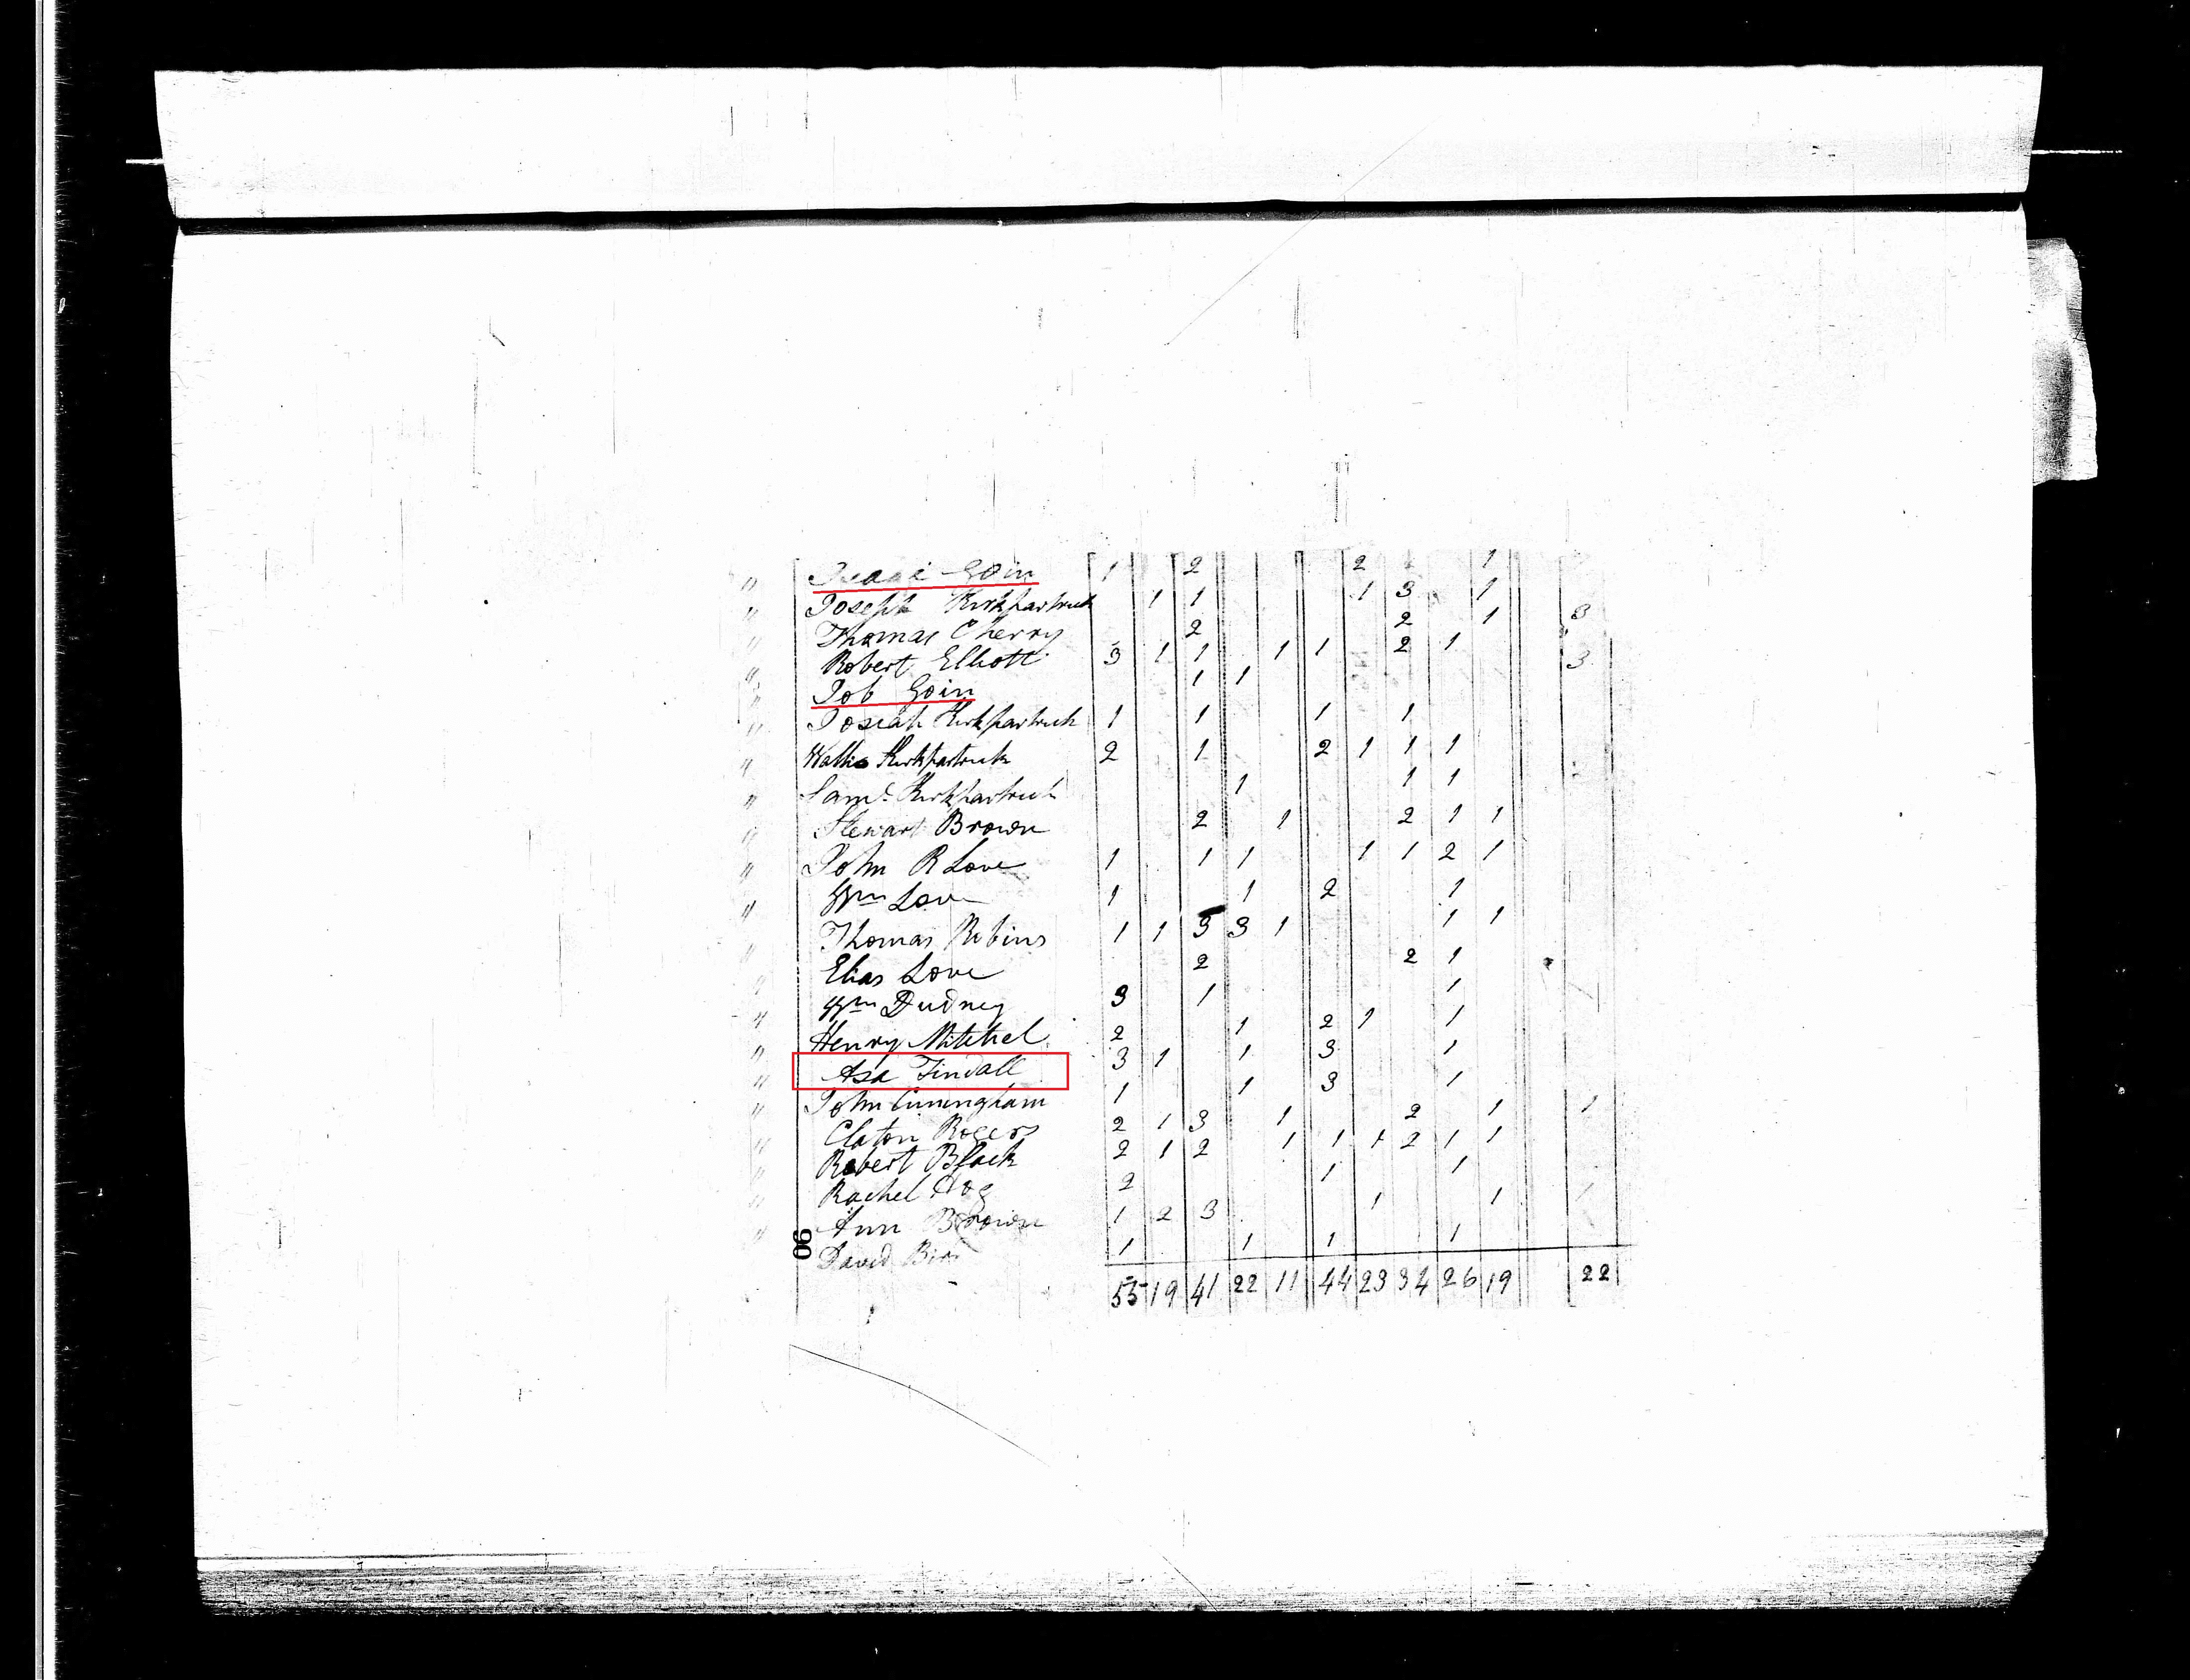 " Isaac Goin 1 2 2 1
" Joseph Kirkpartrick 1 1 1 3 1
" Thomas Cherry 2 2 1 3
" Robert Elliott 3 1 1 1 1 2 1
" Job Goin 1 1 3
" Josiah Kirkpartrick 1 1 1 1
" Kirkpartrick 2 1 2 1 1 1
" Saml Kirkpartrick 1 1 1
" Stewart Brown 2 1 2 1 1
" John R Love 1 1 1 1 1 2 1
" Wm Love 1 1 2 1
Thomas Robins 1 1 3 3 1 1 1
" Elias Love 2 2 1
" Wm Dudney 3 1 1
" Henry Mitchel 2 1 2 1 1
" Asa Tindall 3 1 1 3 1
" John Cuningham 1 1 3 1
" Claton Rogers 2 1 3 1 2 1 1
" Robert Black 2 1 2 1 1 1 2 1 1
" Rachel Hog 2 1 1
" Ann Brown 1 2 3 1 1 1
David 1 1 1 1
90
55 19 41 22 11 44 23 34 26 19 22